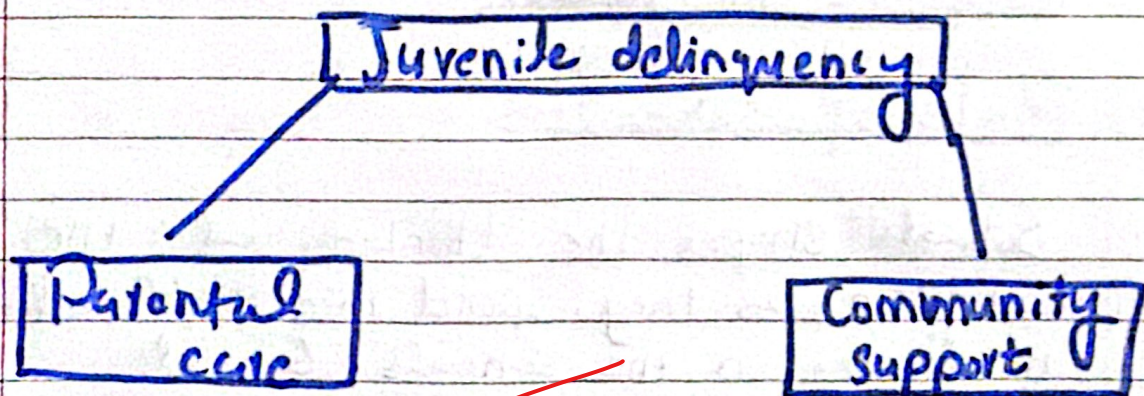 Juvenile delinquency
Parental
care
Community
support